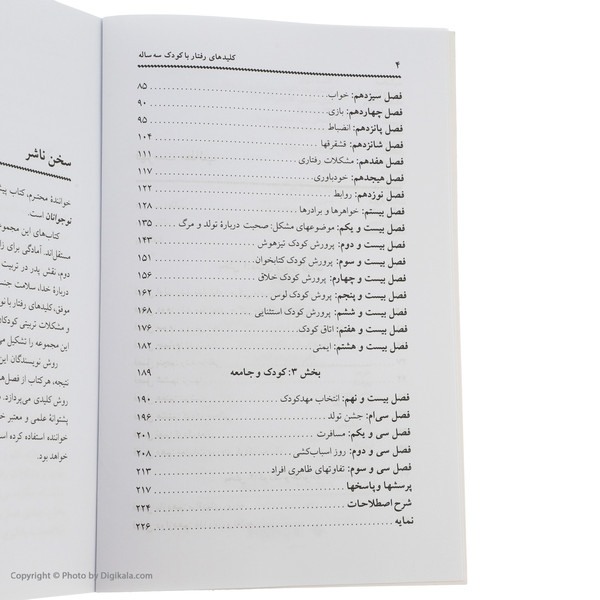 ۴ کلیدهای رفتار با کودک سه ساله
فصل سیزدهم: خواب ۸۵
فصل چهاردهم: بازی ۹۰
فصل پانزدهم: انضباط ۹۵
فصل شانزدهم: قشقرقها ۱۰۴
فصل هفدهم: مشکلات رفتاری ۱۱۱
فصل هیجدهم: خودباوری ۱۱۷
فصل نوزدهم: روابط ۱۲۲
فصل بیستم: خواهرها و برادرها ۱۲۸
فصل بیست و یکم: موضوعهای مشکل: صحبت دربارهٔ تولد و مرگ ۱۳۵
فصل بیست و دوم: پرورش کودک تیزهوش ۱۴۳
فصل بیست و سوم: پرورش کودک کتابخوان ۱۵۱
فصل بیست و چهارم: پرورش کودک خلاق ۱۵۶
فصل بیست و پنجم: پروش کودک لوس ۱۶۲
فصل بیست و ششم: پرورش کودک استثنایی ۱۶۸
فصل بیست و هفتم: اتاق کودک ۱۷۶
فصل بیست و هشتم: ایمنی ۱۸۲
بخش ۳: کودک و جامعه ۱۸۹
فصل بیست و نهم: انتخاب مهدکودک ۱۹۰
فصل سی‌ام: جشن تولد ۱۹۶
فصل سی و یکم: مسافرت ۲۰۱
فصل سی و دوم: روز اسباب‌کشی ۲۰۸
فصل سی و سوم: تفاوتهای ظاهری افراد ۲۱۳
پرسشها و پاسخها ۲۱۷
شرح اصطلاحات ۲۲۴
نمایه ۲۲۶
سخن ناشر
خوانندهٔ محترم، کتاب
نوجوانان است.
کتاب‌های این مجموع
مستقل‌اند. آمادگی برای
دوم، نقش پدر در تربیت
دربارهٔ خدا، سلامت
موفق، کلیدهای رفتار با
و مشکلات تربیتی
این مجموعه را تشکیل
روش نویسندگان این
نتیجه، هر کتاب از
روش کلیدی می‌پردازد.
پشتوانهٔ علمی و معتبر
خواننده استفاده کرده
خواهد بود.
Copyright © Photo by Digikala.com